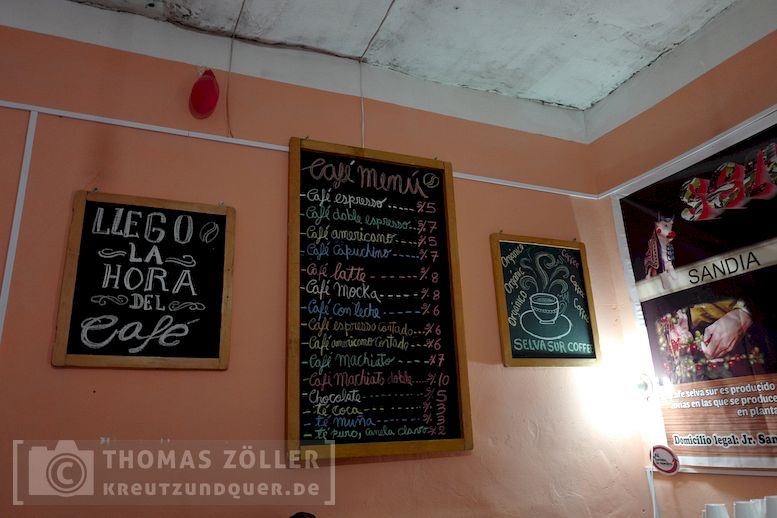 LLEGO
LA
HORA
DEL
Café
Café menú
Café espresso S/. 5
Café doble espresso S/. 7
Café americano S/. 5
Café Capuchino S/. 7
Café latte S/. 8
Café Mocka S/. 8
Café con leche S/. 6
Café espresso Cortado S/. 6
Café americano Cortado S/. 6
Café Machiato S/. 7
Café Machiato doble S/. 10
Chocolate S/. 5
té coca S/. 3
té muña S/. 3
té puro, canela clavo S/. 2
Organico
Organic
Orgánico
Coffee
Coffee
Coffee
SELVA SUR COFFEE
SANDIA
cafe selva sur es producido
zonas en las que se produce
en planta
Domicilio legal: Jr. San
© THOMAS ZÖLLER
KREUTZUNDQUER.DE